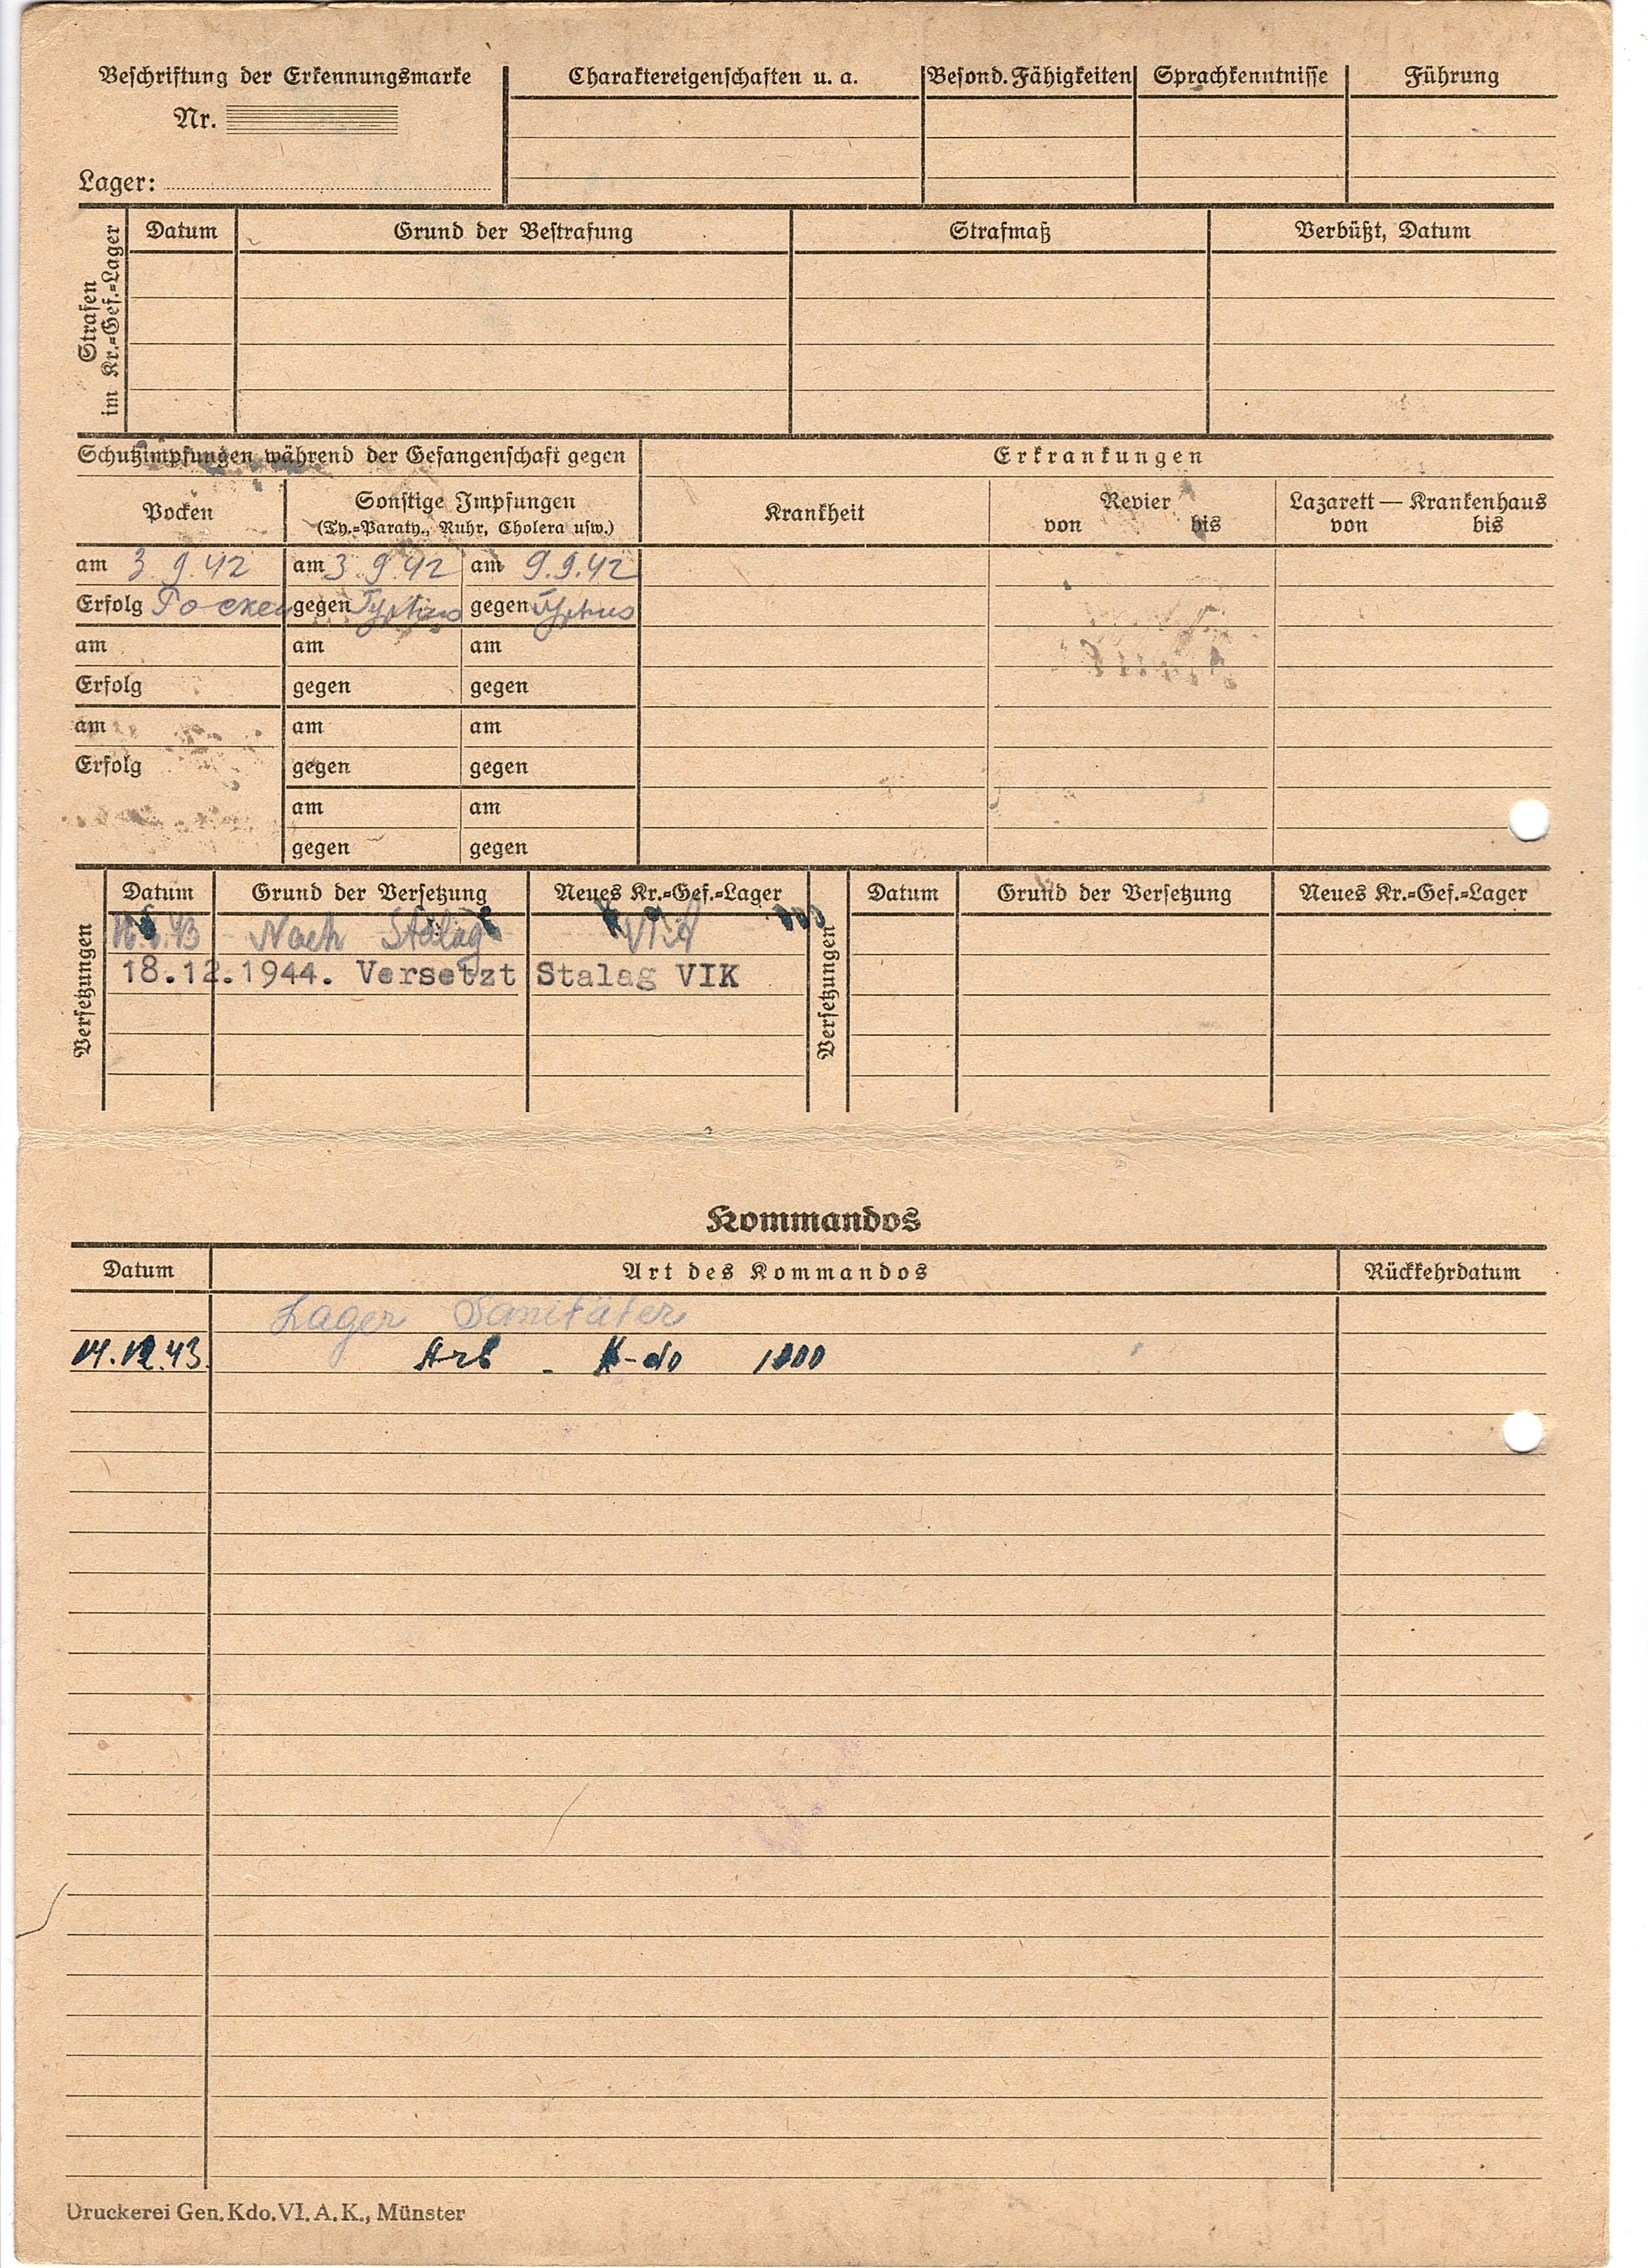 Beschriftung der Erkennungsmarke
Nr.
Lager:
Charaktereigenschaften u. a.
Besond. Fähigkeiten
Sprachkenntnisse
Führung
Strafen im Kr.=Gef.=Lager
Datum
Grund der Bestrafung
Strafmaß
Verbüßt, Datum
Schutzimpfungen während der Gefangenschaft gegen
Erkrankungen
Pocken
Sonstige Impfungen
(Ty.=Paraty., Ruhr, Cholera usw.)
Krankheit
Revier
von bis
Lazarett — Krankenhaus
von bis
am 3.9.42 am 3.9.42 am 9.9.42
Erfolg Pocken gegen Typhus gegen Typhus
am am am
Erfolg gegen gegen
am am am
Erfolg gegen gegen
am am
gegen gegen
Versetzungen
Datum Grund der Versetzung Neues Kr.=Gef.=Lager
Nach Stalag VI A
18.12.1944. Versetzt Stalag VIK
Versetzungen
Datum Grund der Versetzung Neues Kr.=Gef.=Lager
Kommandos
Datum Art des Kommandos Rückkehrdatum
Lager Sanitäter
14.12.43. Arb - K-do 1000
Druckerei Gen. Kdo. VI. A. K., Münster